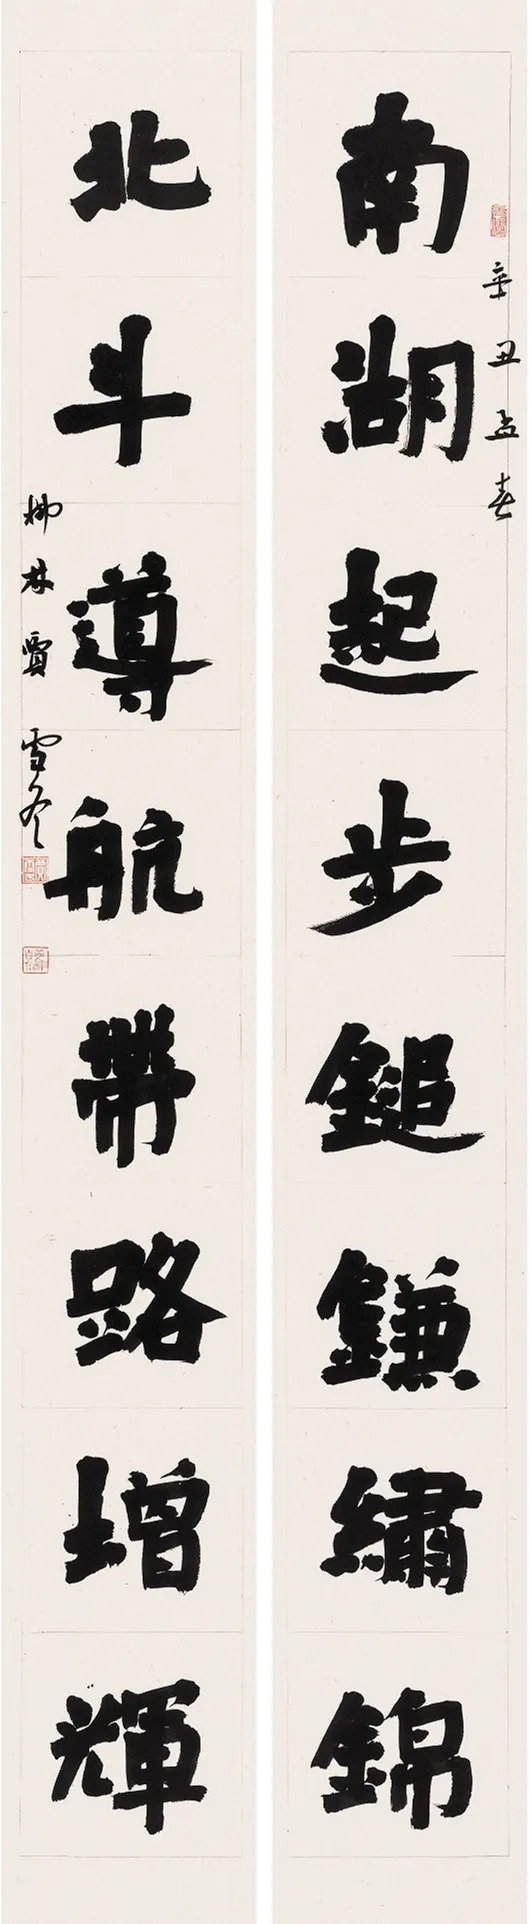 辛丑孟春
南湖起步鎚鐮繡錦
北斗導航帶路增輝
柳林賈雪冬